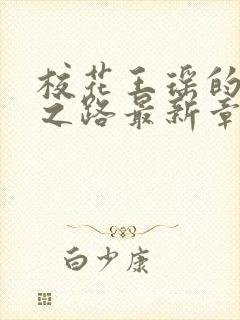 校花王瑶的
之路最新章
白少康